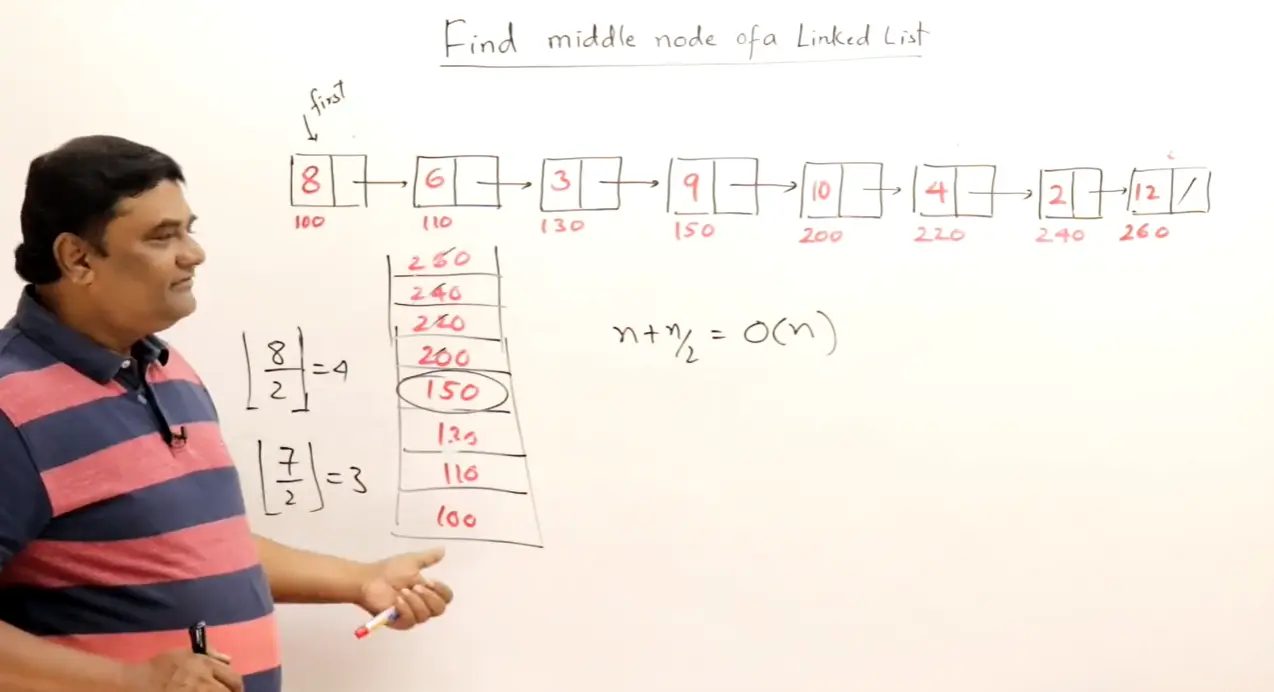 Find middle node of a Linked List
first
8 6 3 9 10 4 2 12 /
100 110 130 150 200 220 240 260
260
240
220
200
150
130
110
100
⌊8/2⌋=4
⌊7/2⌋=3
n+n/2 = O(n)